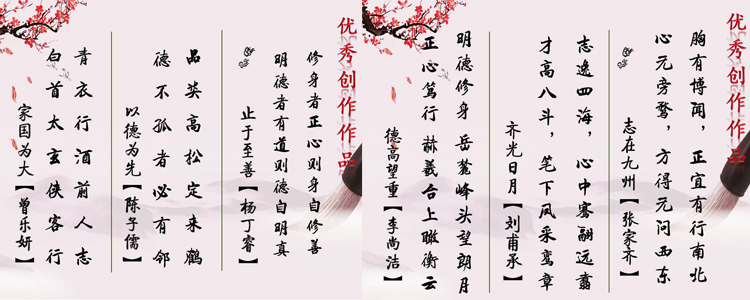 优秀创作作品
修身者正心则身自修善
明德者有道则德自明真
止于至善【杨丁睿】
品类高松定来鹤
德不孤者必有邻
以德为先【陈子儒】
青衣行酒前人志
白首太玄侠客行
家国为大【曾乐妍】
优秀创作作品
胸有博闻，正宜有行南北
心无旁骛，方得无问西东
志在九州【张家齐】
志逸四海，心中骞翮远翥
才高八斗，笔下凤采鸾章
齐光日月【刘甫承】
明德修身 岳麓峰头望朗月
正心笃行 赫羲台上瞰衡云
德高望重【李尚洁】